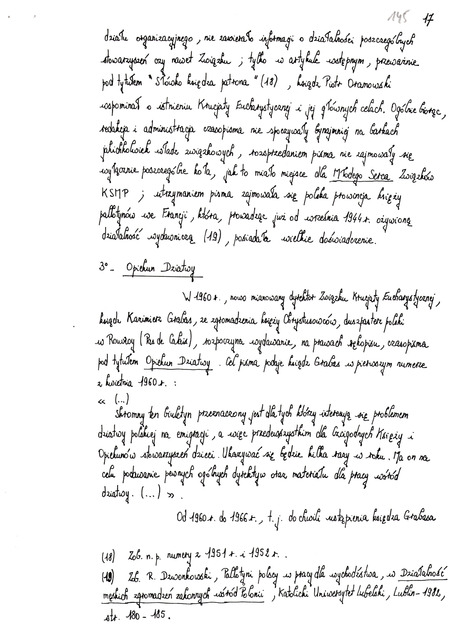 145 17
działu organizacyjnego, nie zawierało informacji o działalności poszczególnych
stowarzyszeń czy nawet Związku ; tylko w artykule wstępnym, przeważnie
pod tytułem "Słówko księdza patrona" (18) , ksiądz Piotr Oramowski
wspominał o istnieniu Krucjaty Eucharystycznej i jej głównych celach. Ogólnie biorąc,
redakcja i administracja czasopisma nie spoczywały bynajmniej na barkach
jakichkolwiek władz związkowych, rozsprzedaniem pisma nie zajmowały się
wyłącznie poszczególne koła, jak to miało miejsce dla Młodego Serca Związków
KSMP ; utrzymaniem pisma zajmowała się polska prowincja księży
pallotynów we Francji, która, prowadząc już od września 1944 r. ożywioną
działalność wydawniczą (19) , posiadała wielkie doświadczenie.
3°- Opiekun Dziatwy
W 1960 r. , nowo mianowany dyrektor Związku Krucjaty Eucharystycznej,
ksiądz Kazimierz Grabas, ze zgromadzenia księży Chrystusowców, duszpasterz polski
w Rouvroy (Pas de Calais), rozpoczyna wydawanie, na prawach rękopisu, czasopisma
pod tytułem Opiekun Dziatwy . Cel pisma podaje ksiądz Grabas w pierwszym numerze
z kwietnia 1960 r. :
« (...)
Skromny ten biuletyn przeznaczony jest dla tych którzy interesują się problemem
dziatwy polskiej na emigracji , a więc przedewszystkim dla Czcigodnych Księży i
Opiekunów stowarzyszeń dzieci. Ukazywać się będzie kilka razy w roku. Ma on na
celu podawanie pewnych ogólnych dyrektyw oraz materiału dla pracy wśród
dziatwy. (...) » .
Od 1960 r. do 1966 r. , t. j. do chwili ustąpienia księdza Grabasa
(18) Zob. n. p. numery z 1951 r. i 1952 r. .
(19) Zob. R. Dzwonkowski , Pallotyni polscy w pracy dla wychodźstwa , w Działalność
męskich zgromadzeń zakonnych wśród Polonii , Katolicki Uniwersytet Lubelski , Lublin - 1982,
str. 180 - 185.